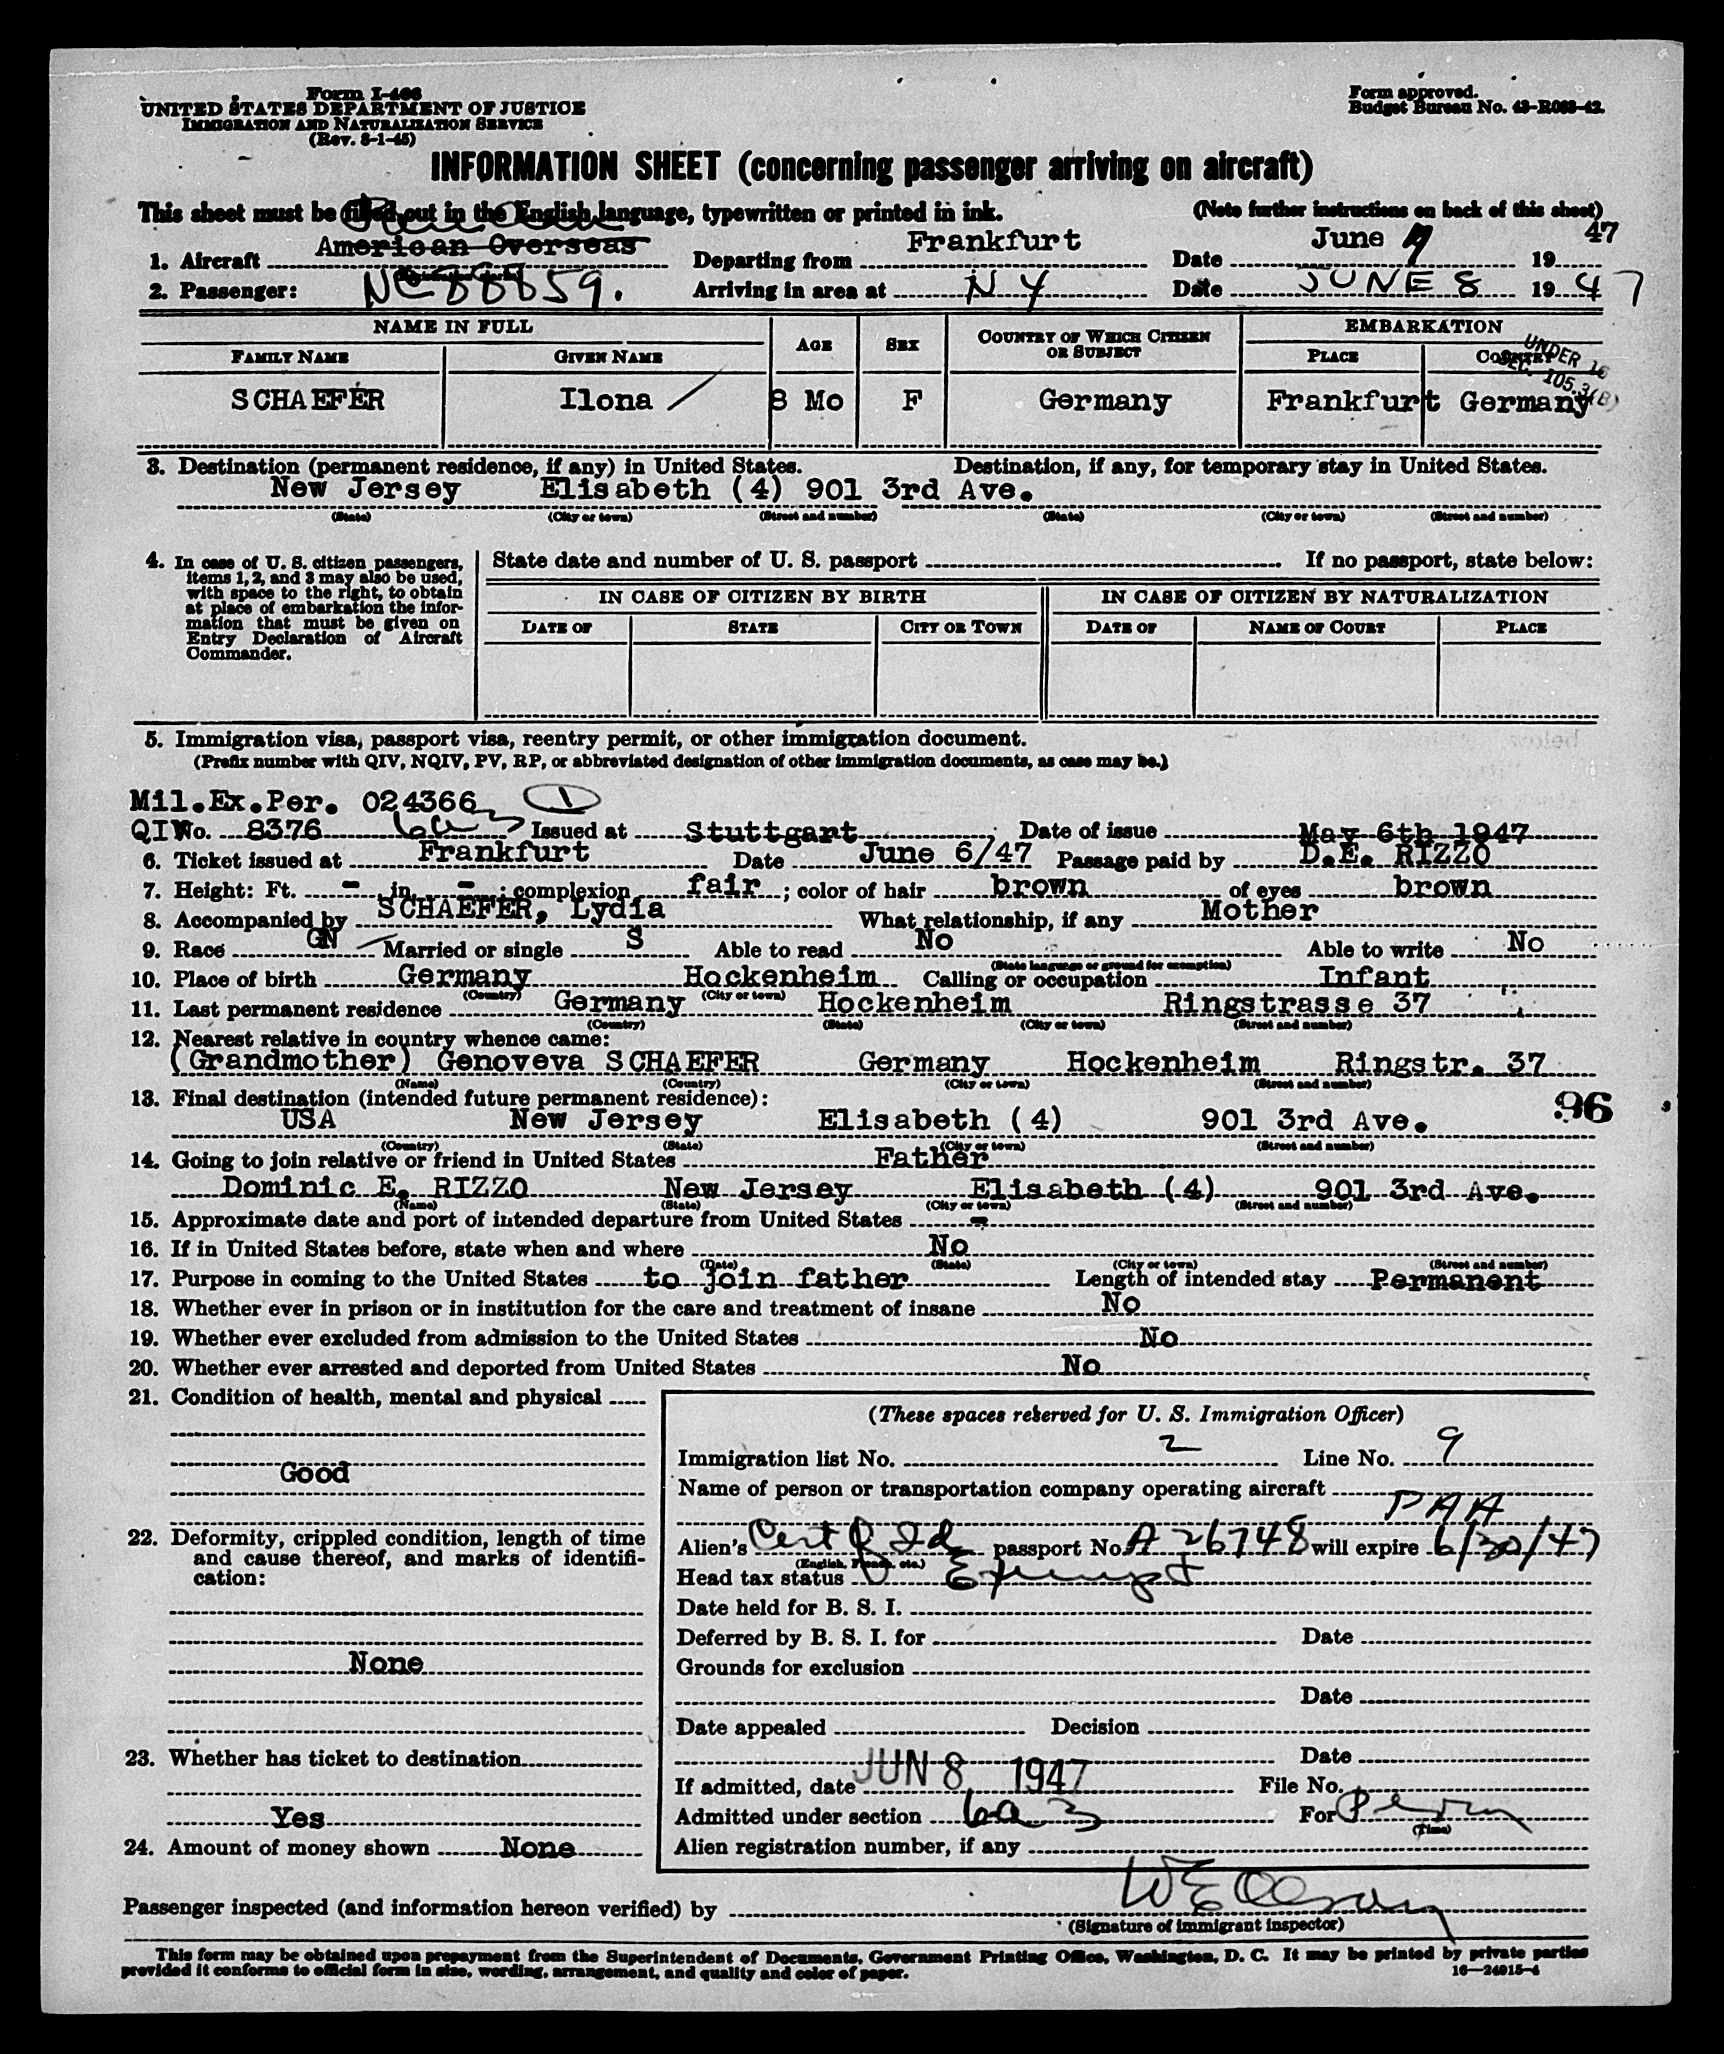 Form I-466
UNITED STATES DEPARTMENT OF JUSTICE
IMMIGRATION AND NATURALIZATION SERVICE
(Rev. 8-1-45)
Form approved.
Budget Bureau No. 43-R083-42.
INFORMATION SHEET (concerning passenger arriving on aircraft)
This sheet must be filled out in the English language, typewritten or printed in ink. (Note further instructions on back of this sheet)
1. Aircraft American Overseas Departing from Frankfurt Date June 19 47
2. Passenger: NC 88859. Arriving in area at N Y Date JUNE 8 19 47
NAME IN FULL AGE SEX COUNTRY OF WHICH CITIZEN OR SUBJECT EMBARKATION
FAMILY NAME GIVEN NAME PLACE COUNTRY
UNDER 16
SEC. 105.3(B)
SCHAEFER Ilona 8 Mo F Germany Frankfurt Germany
3. Destination (permanent residence, if any) in United States. Destination, if any, for temporary stay in United States.
New Jersey Elisabeth (4) 901 3rd Ave.
(State) (City or town) (Street and number) (State) (City or town) (Street and number)
4. In case of U. S. citizen passengers, items 1, 2, and 3 may also be used, with space to the right, to obtain at place of embarkation the information that must be given on Entry Declaration of Aircraft Commander.
State date and number of U. S. passport If no passport, state below:
IN CASE OF CITIZEN BY BIRTH IN CASE OF CITIZEN BY NATURALIZATION
DATE OF STATE CITY OR TOWN DATE OF NAME OF COURT PLACE
5. Immigration visa, passport visa, reentry permit, or other immigration document.
(Prefix number with QIV, NQIV, PV, RP, or abbreviated designation of other immigration documents, as case may be.)
Mil.Ex.Per. 024366 1
QIV No. 8376 6a3 Issued at Stuttgart, Date of issue May 6th 1947
6. Ticket issued at Frankfurt Date June 6/47 Passage paid by D.E. RIZZO
7. Height: Ft. - in. - ; complexion fair ; color of hair brown of eyes brown
8. Accompanied by SCHAEFER, Lydia What relationship, if any Mother
9. Race GN Married or single S Able to read No Able to write No
(State language or ground for exemption)
10. Place of birth Germany Hockenheim Calling or occupation Infant
(Country) (City or town)
11. Last permanent residence Germany Hockenheim Ringstrasse 37
(Country) (State) (City or town) (Street and number)
12. Nearest relative in country whence came:
(Grandmother) Genoveva SCHAEFER Germany Hockenheim Ringstr. 37
(Name) (Country) (City or town) (Street and number)
13. Final destination (intended future permanent residence):
96
USA New Jersey Elisabeth (4) 901 3rd Ave.
(Country) (State) (City or town) (Street and number)
14. Going to join relative or friend in United States Father
Dominic E. RIZZO New Jersey Elisabeth (4) 901 3rd Ave.
(Name) (State) (City or town) (Street and number)
15. Approximate date and port of intended departure from United States -
16. If in United States before, state when and where No
(Date) (State) (City or town) (Street and number)
17. Purpose in coming to the United States to join father Length of intended stay Permanent
18. Whether ever in prison or in institution for the care and treatment of insane No
19. Whether ever excluded from admission to the United States No
20. Whether ever arrested and deported from United States No
21. Condition of health, mental and physical
Good
22. Deformity, crippled condition, length of time and cause thereof, and marks of identification:
None
23. Whether has ticket to destination
Yes
24. Amount of money shown None
(These spaces reserved for U. S. Immigration Officer)
Immigration list No. 2 Line No. 9
Name of person or transportation company operating aircraft
PAA
Alien's Cert of Id passport No. A 26748 will expire 6/30/47
(English, French, etc.)
Head tax status Exempt
Date held for B. S. I.
Deferred by B. S. I. for Date
Grounds for exclusion
Date
Date appealed Decision
Date
If admitted, date JUN 8 1947 File No.
Admitted under section 6a3 For Perm
(Time)
Alien registration number, if any
Passenger inspected (and information hereon verified) by
(Signature of immigrant inspector)
This form may be obtained upon prepayment from the Superintendent of Documents, Government Printing Office, Washington, D. C. It may be printed by private parties
provided it conforms to official form in size, wording, arrangement, and quality and color of paper. 16—24915-4